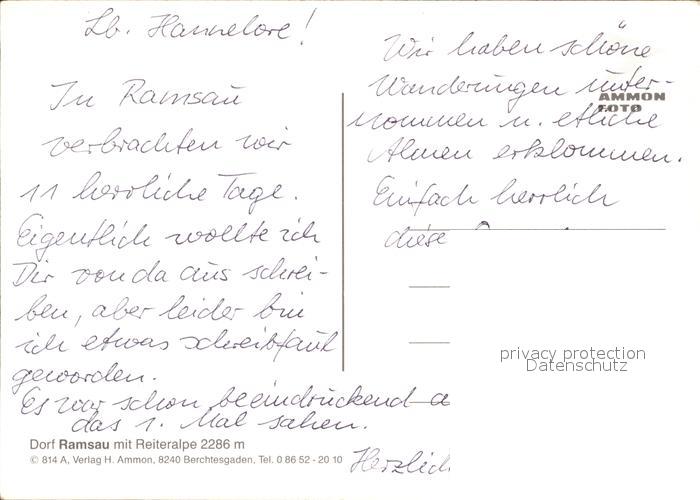 Lb. Hannelore!
In Ramsau
verbrachten wir
11 herrliche Tage.
Eigentlich wollte ich
Dir von da aus schrei-
ben, aber leider bin
ich etwas schreibfaul
geworden.
Es war schon beeindruckend a
das 1. Mal sahen.
Dorf Ramsau mit Reiteralpe 2286 m
© 814 A, Verlag H. Ammon, 8240 Berchtesgaden, Tel. 0 86 52 - 20 10
Wir haben schöne
Wanderungen unter-
AMMON
FOTO
nommen u. etliche
Almen erklommen.
Einfach herrlich
diese
privacy protection
Datenschutz
Herzlich